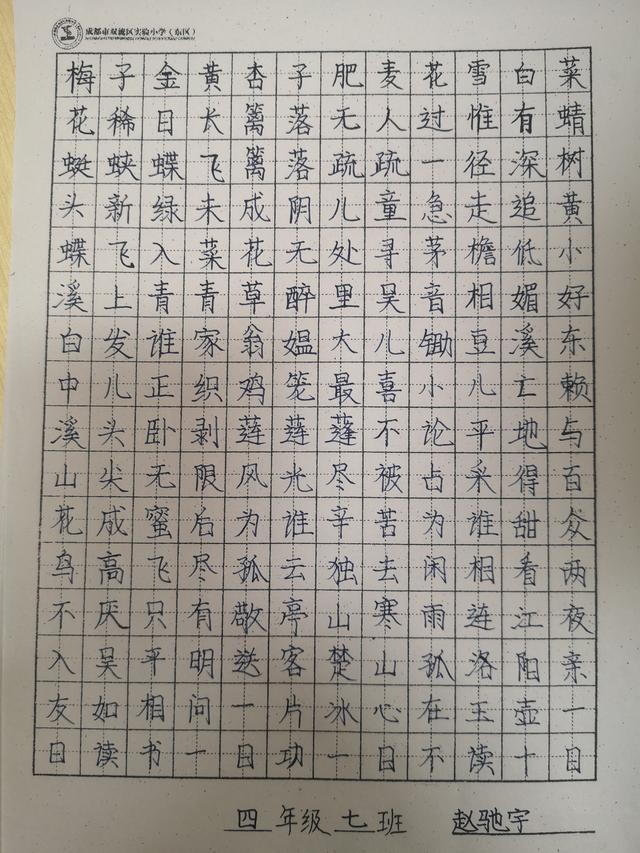 成都市双流区实验小学（东区）
梅子金黄杏子肥麦花雪白菜
花稀日长篱落无人过惟有蜻
蜓蛱蝶飞篱落疏疏一径深树
头新绿未成阴儿童急走追黄
蝶飞入菜花无处寻茅檐低小
溪上青青草醉里吴音相媚好
白发谁家翁媪大儿锄豆溪东
中儿正织鸡笼最喜小儿亡赖
溪头卧剥莲莲蓬不论平地与
山尖无限风光尽被占采得百
花成蜜后为谁辛苦为谁甜众
鸟高飞尽孤云独去闲相看两
不厌只有敬亭山寒雨连江夜
入吴平明送客楚山孤洛阳亲
友如相问一片冰心在玉壶一
日读书一日功一日不读十日
四年级七班 赵驰宇